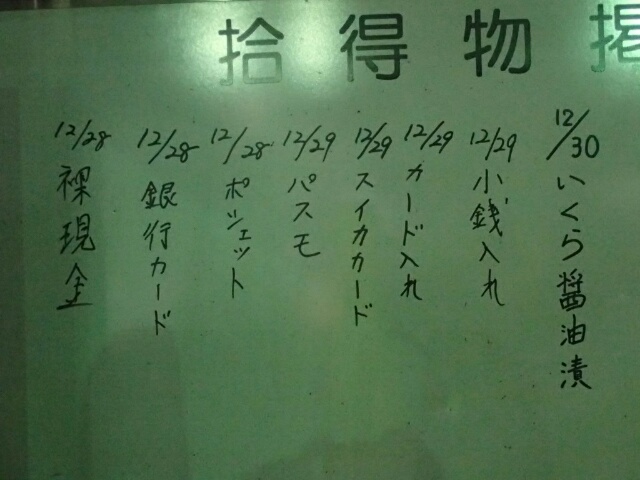 拾得物掲
12/30 いくら醤油漬
12/29 小銭入れ
12/29 カード入れ
12/29 スイカカード
12/29 パスモ
12/28 ポシェット
12/28 銀行カード
12/28 裸現金